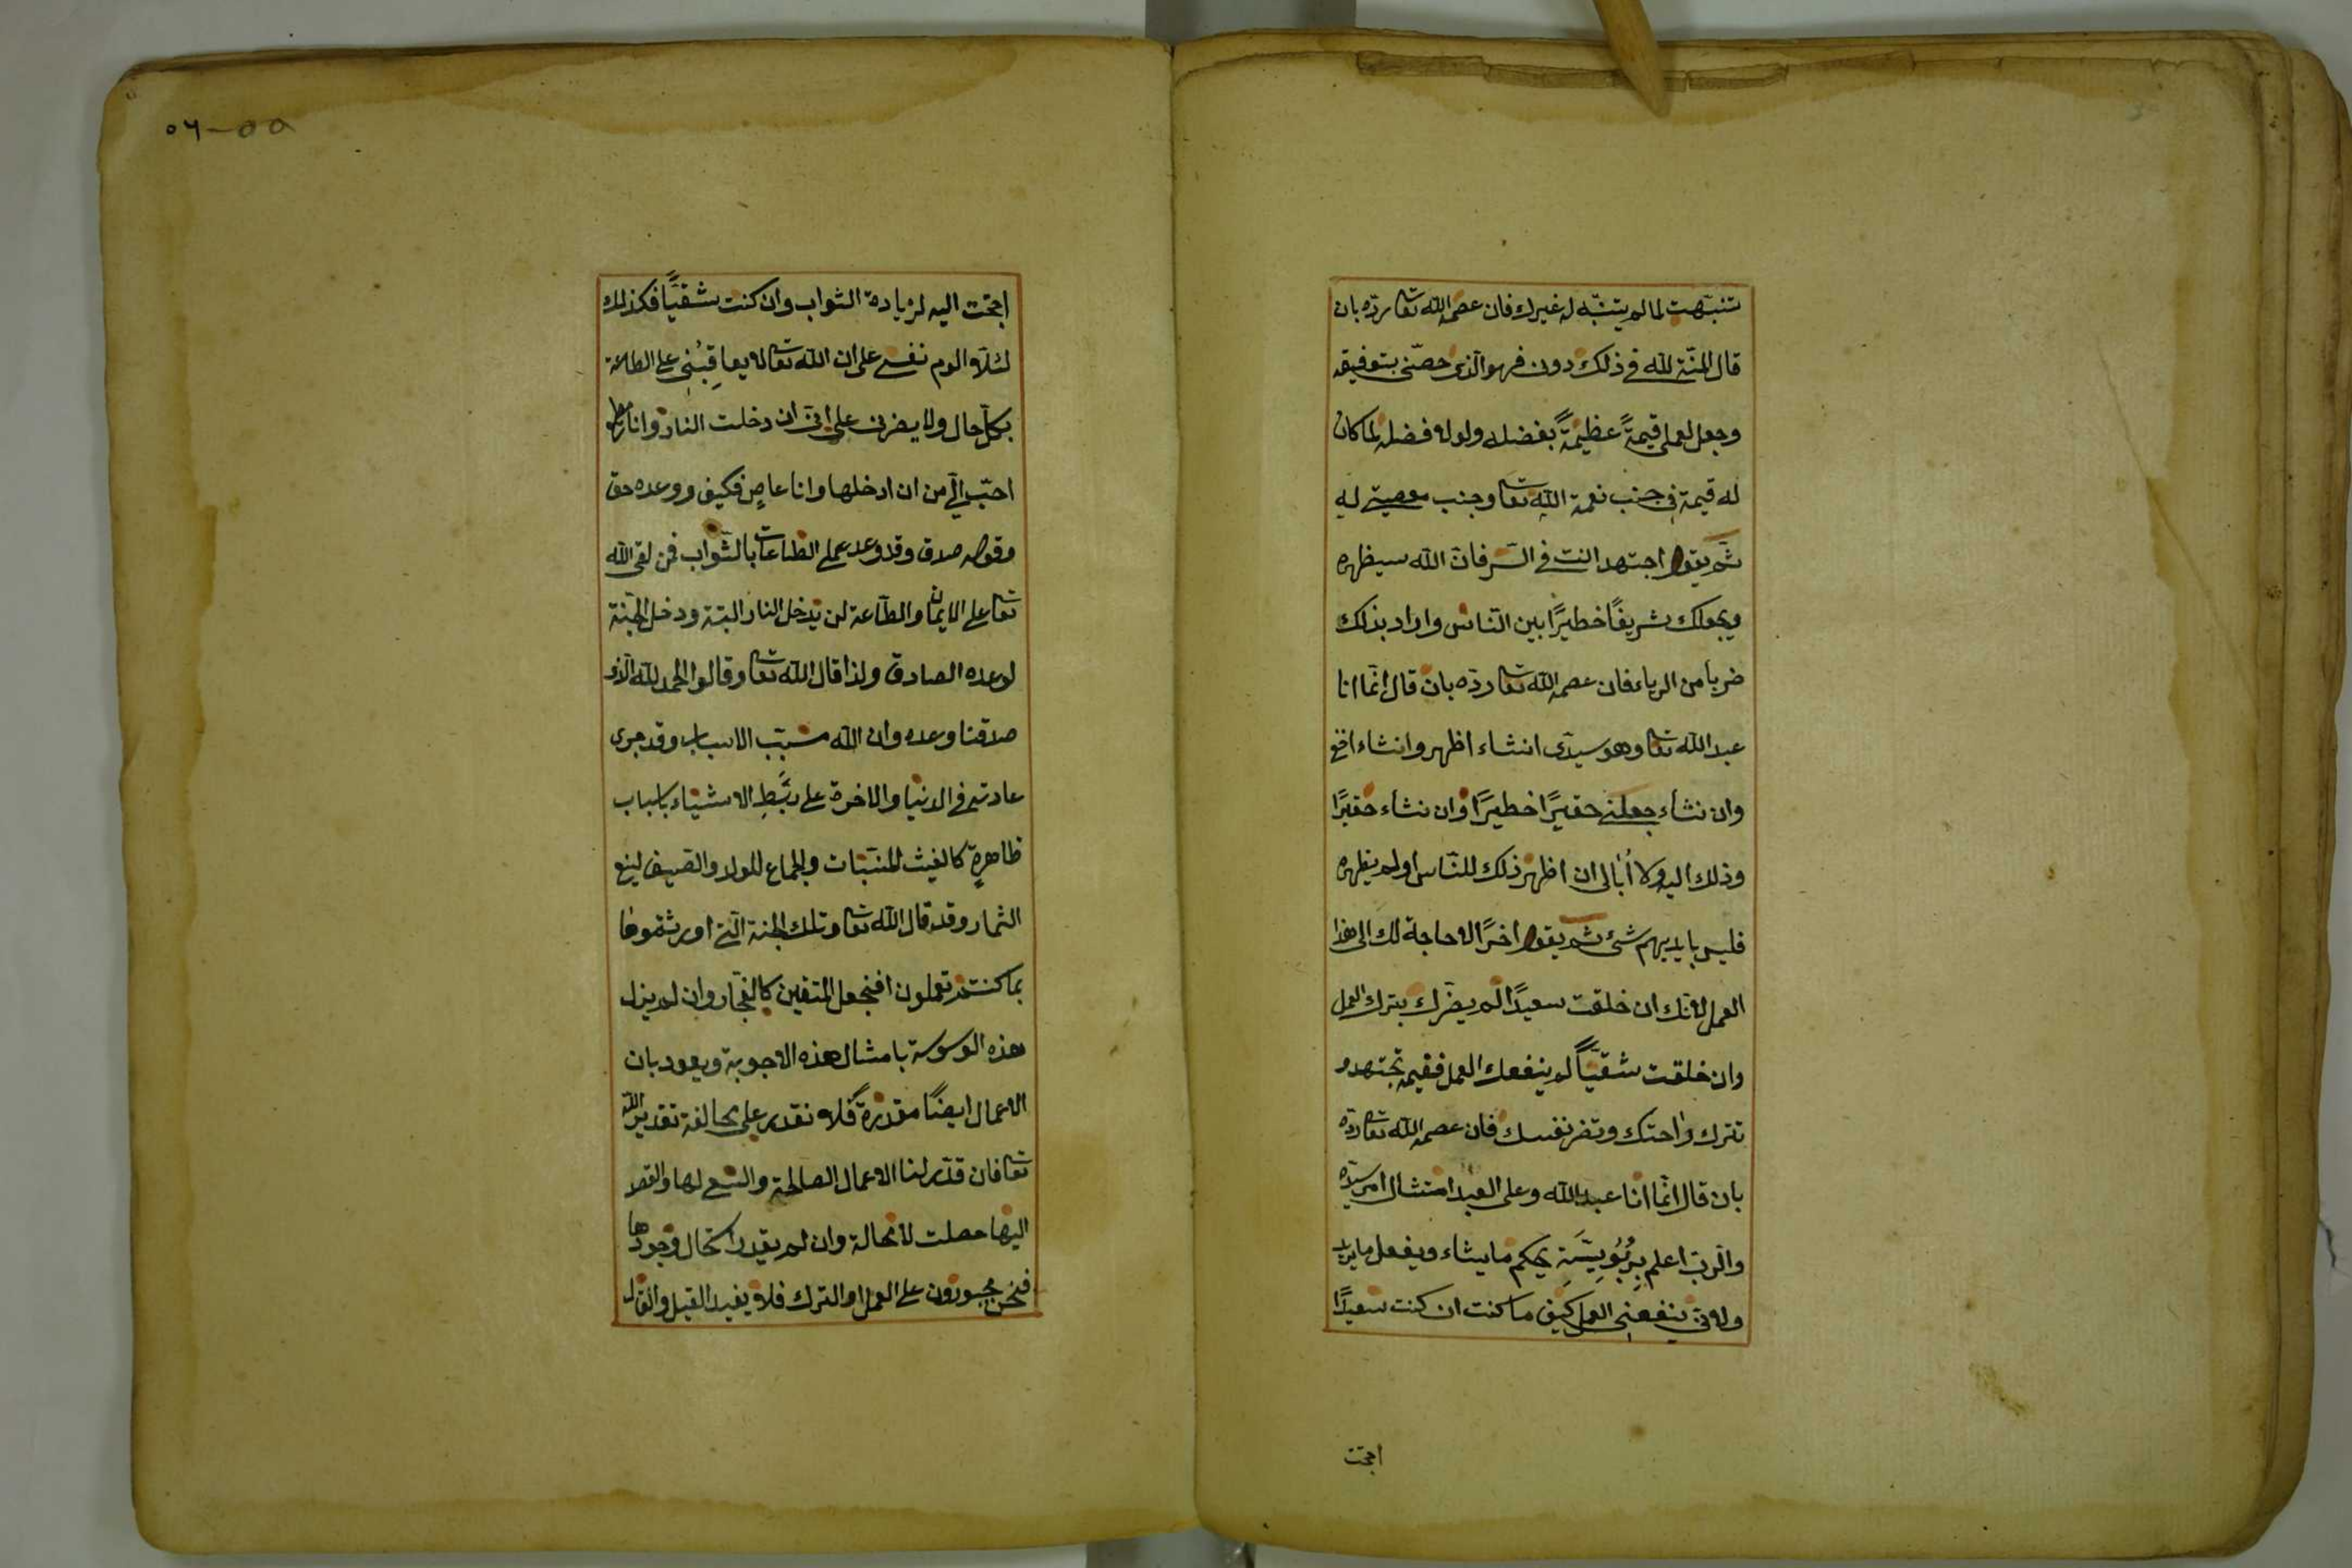 تنبّهت لما لم يتنبّه له غيرك فان عصمه الله تعا ردّه بان
قال المنّة لله في ذلك دون فهو الّذى خصّنى بتوفيقه
وجعل لعملى قيمةً عظيمةً بفضله ولولا فضله لما كان
له قيمة فى جنب نعمة الله تعا وجنب معصيتى له
ثم يقول اجتهد انت فى السّر فانّ الله سيظهره
ويجعلك شريفًا خطيرًا بين النّاس واراد بذلك
ضربا من الرياء فان عصمه الله تعا ردّه بان قال انّما انا
عبد الله تعا وهو سيدى انشاء اظهر وانشاء اخفى
وان نشاء جعلنى حقيرًا خطيرًا وان نشاء حقيرًا
وذلك اليه ولا أبالى ان اظهر ذلك للنّاس او لم يظهره
فليس بايديهم شئ ثم يقول اخرًا لا حاجة لك الى هذا
العمل لانّك ان خلقت سعيدًا لم يضرّك بترك العمل
وان خلقت شقيّاً لم ينفعك العمل ففيم تجتهد و
تترك راحتك وتضر نفسك فان عصمه الله تعا ردّه
بان قال انّما انا عبد الله وعلى العبد امتثال امر سيّده
والرّبّ اعلم بِرُبُوبِيَّتِهِ يحكم ما يشاء ويفعل ما يريد
ولانى ينفعنى العمل كيف ما كنت ان كنت سعيدًا
احتجت
٥٥-٥٦
احتجت اليه لزيادة الثواب وان كنت شقيّاً فكذلك
لئلّا الوم نفسى على ان الله تعا لا يعاقِبُنى على الطاعة
بكلّ حال ولا يضرنى على انّى ان دخلت النار وانا مطيع
احبّ الىّ من ان ادخلها وانا عاصٍ فكيف ووعده حق
وقوله صدق وقد وعد على الطاعات بالثّواب فمن لقى الله
تعا على الايمان والطّاعة لن يدخل النار البتة ودخل الجنّة
لوعده الصادق ولذا قال الله تعا وقالوا الحمد لله الّذى
صدقنا وعده وان الله مسبّب الاسباب وقد جرى
عادته فى الدنيا والاخرة على ربَطِ الاشياء باسباب
ظاهرةٍ كالغيث للنّبات والجماع للولد والصيف لينع
الثمار وقد قال الله تعا وتلك الجنة الّتى اورثتموها
بما كنتم تعملون افنجعل المتقين كالفجّار وان لم يزل
هذه الوسوسة بامثال هذه الاجوبة ويعود بان
الاعمال ايضًا مقدّرةً فلا نقدر على مخالفة تقدير الله
تعا فان قدّر لنا الاعمال الصالحة والسّعى لها والقصد
اليها حصلت لا محالة وان لم يقدر استحال وجودها
فنحن مجبورون على العمل او الترك فلا يفيد القيل والقال